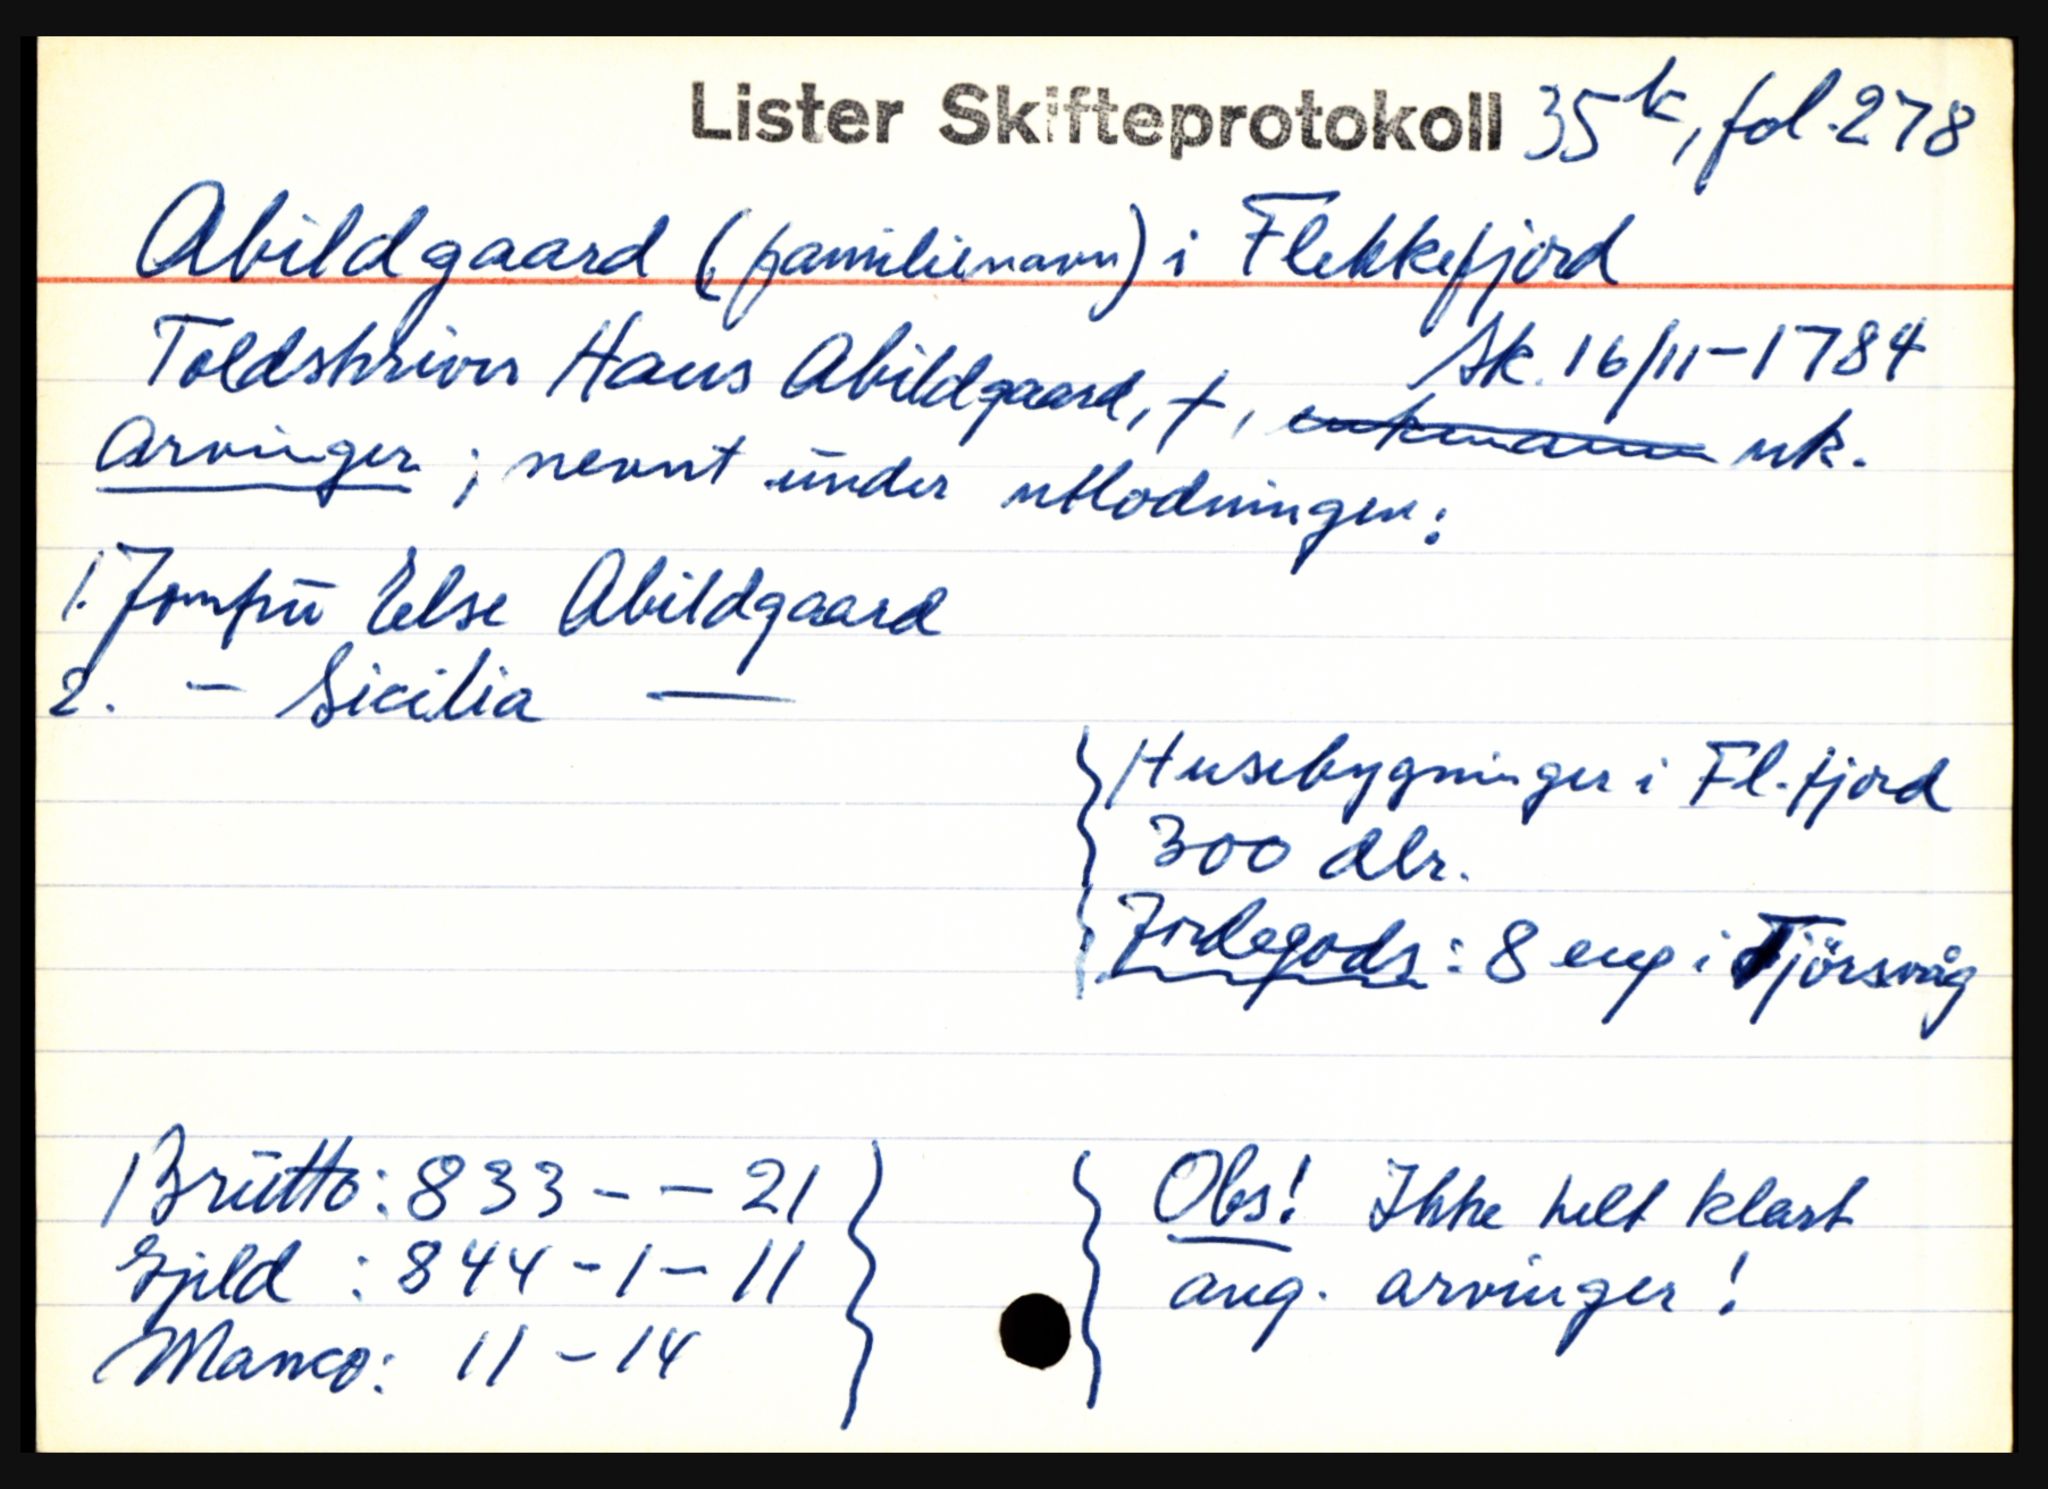 Lister Skifteprotokoll 35k, fol. 278
Abildgaard (familienavn) i Flekkefjord
Toldskriver Hans Abildgaard, †, enkemann uk.
Sk. 16/11-1784
Arvinger; nevnt under utlodningen:
1. Jomfru Else Abildgaard
2. — Sicilia —
Husebygninger i Fl.fjord
300 dlr.
Jordegods: 8 eng i Tjörsvåg
Brutto: 833 - - 21
Gjeld : 844 - 1 - 11
Manco: 11 - 14
Obs! Ikke helt klart
ang. arvinger!